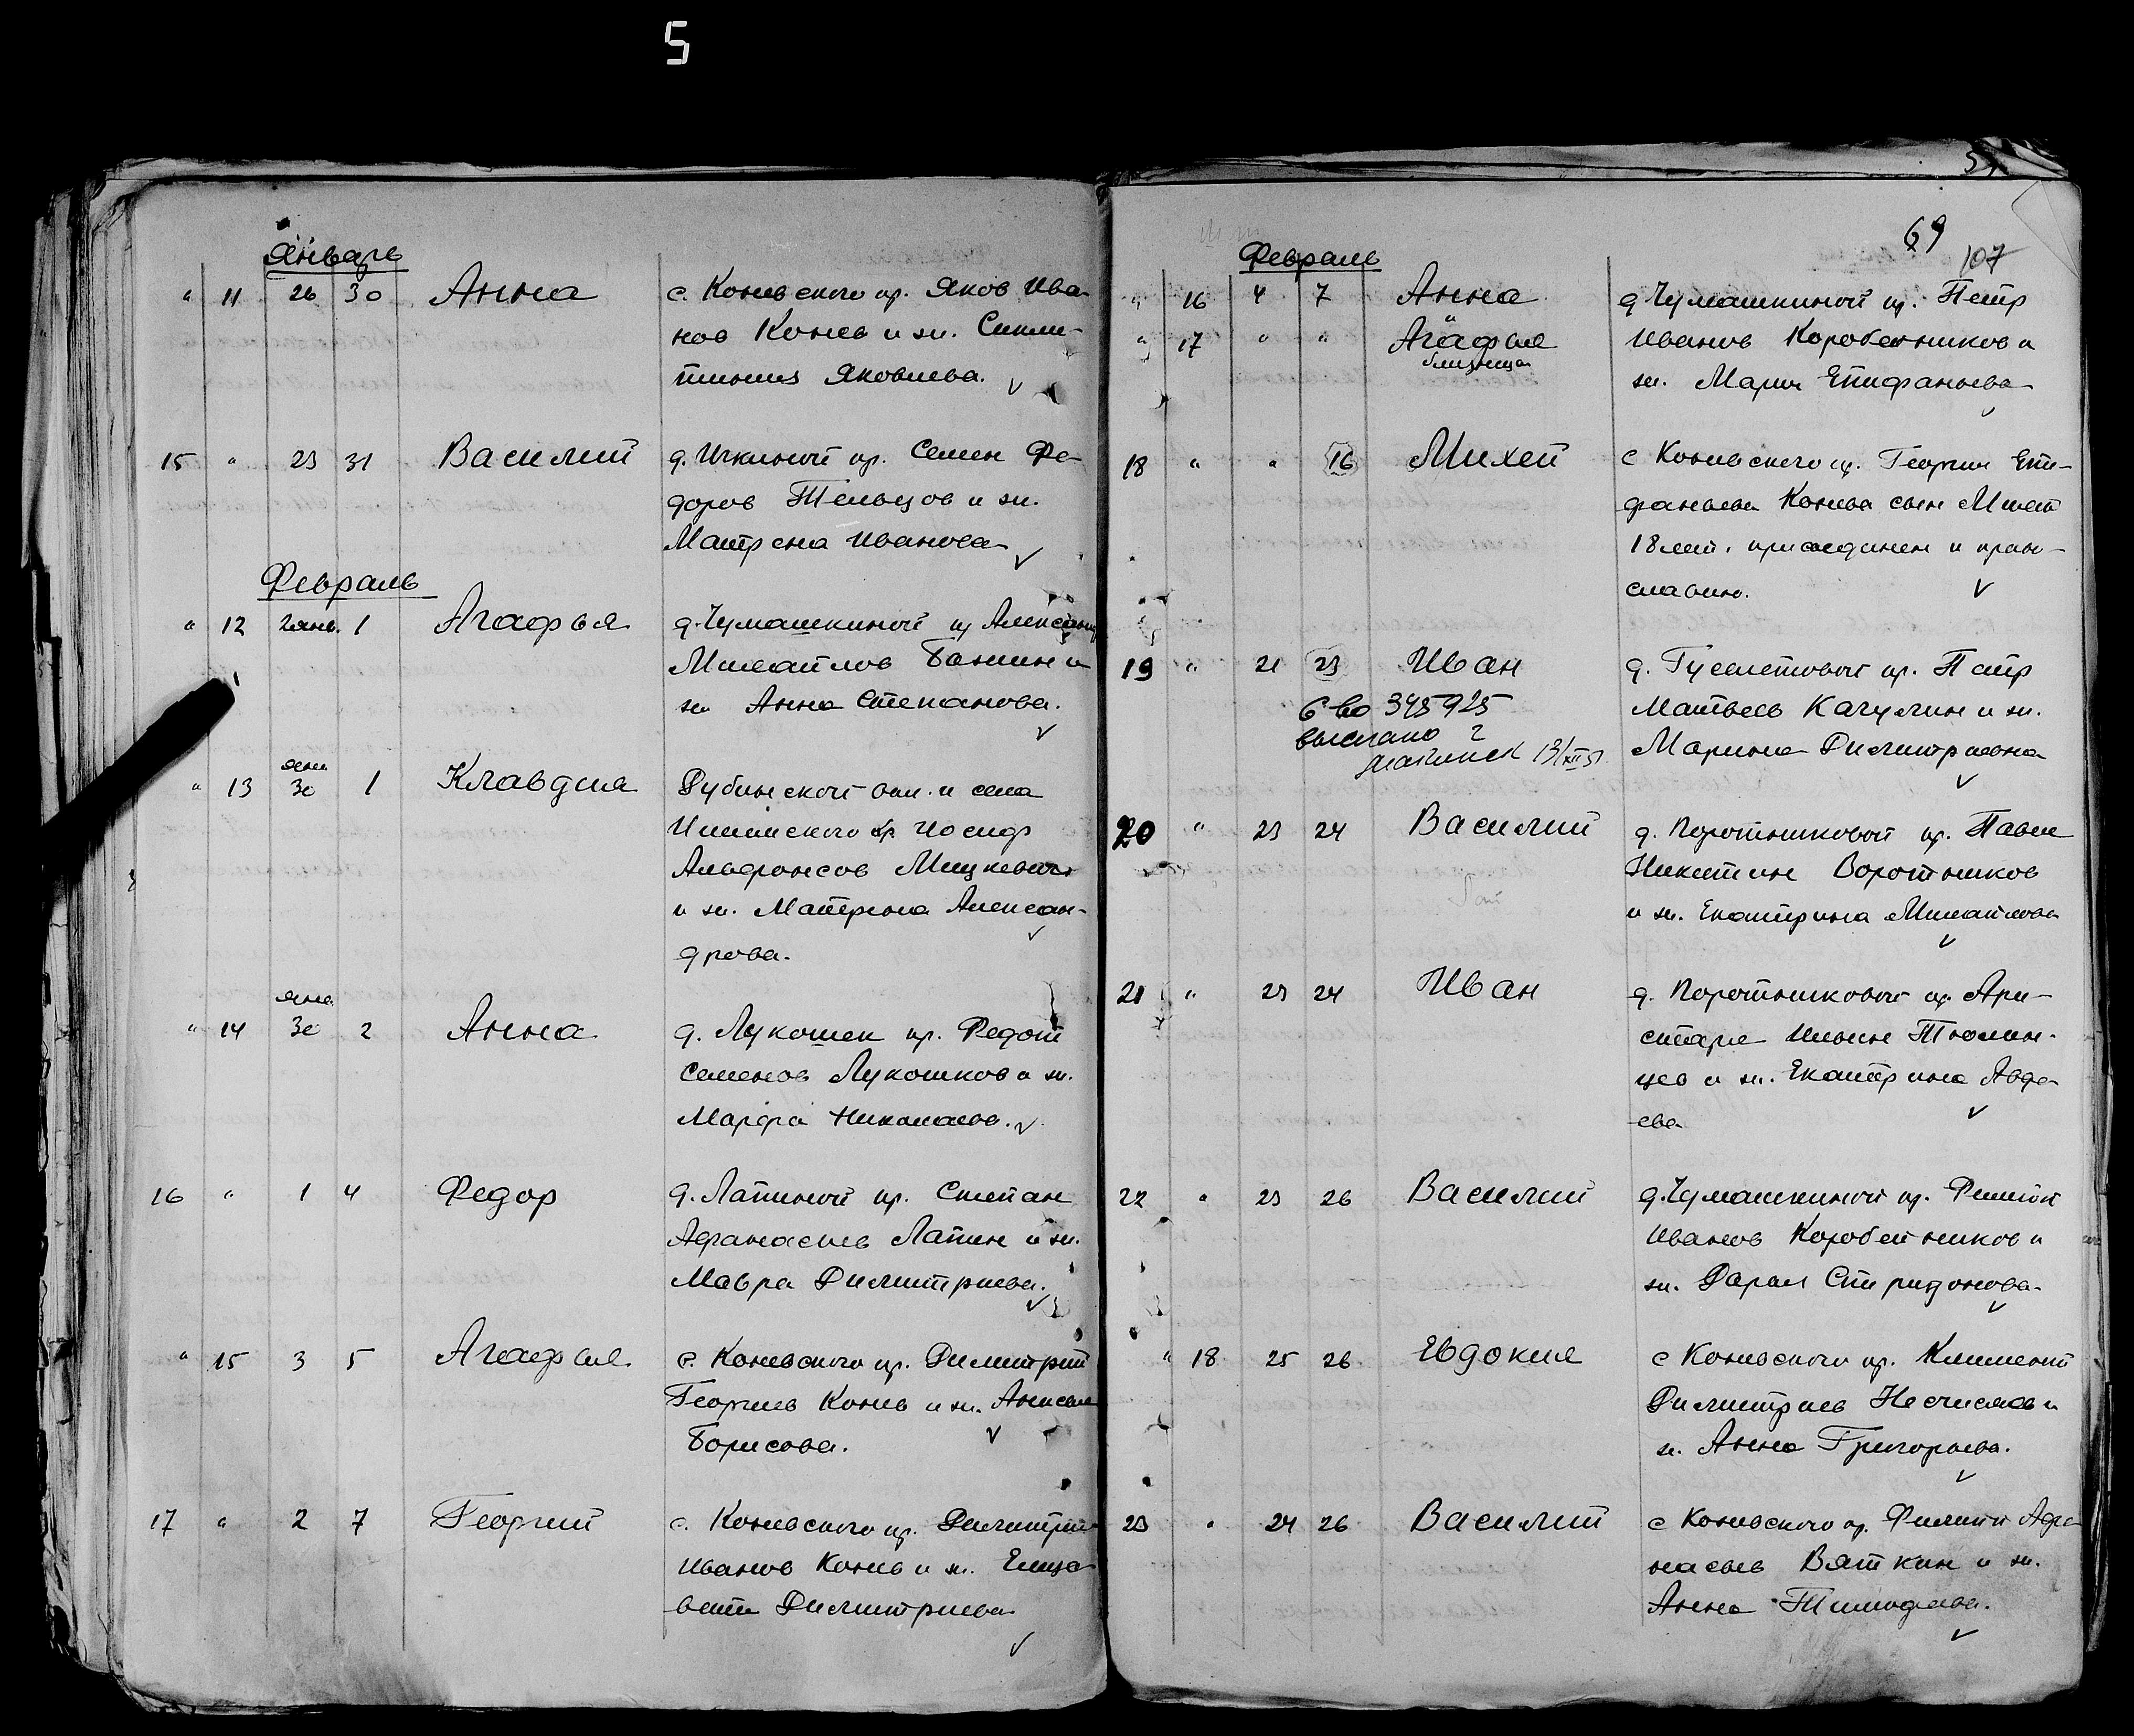 5
Январь
" 11 26 30 Анна с. Коневского кр. Яков Ива-
нов Конев и ж. Синкли-
тикия Яковлева.
15 " 29 31 Василий д. Ичкиной кр. Семен Фе-
доров Тельцов и ж.
Матрена Иванова
Февраль
" 12 2 янв. 1 Агафья д. Чумашкиной кр Александр
Михайлов Банин и
ж. Анна Степанова.
" 13 янв 30 1 Клавдия Дубинской вол. и села
кр Иосиф
Альфонсов Мицкевич
и ж. Матрена Алексан-
дрова.
" 14 янв 30 2 Анна д. Лукошек кр. Федот
Семенов Лукошков и ж.
Марфа Николаева.
16 " 1 4 Федор д. Лапиной кр. Степан
Афанасьев Лапин и ж.
Мавра Димитриева.
" 15 3 5 Агафья с. Коневского кр. Димитрий
Георгиев Конев и ж. Анисья
Борисова.
17 " 2 7 Георгий с. Коневского кр. Димитрий
Иванов Конев и ж. Елиза-
вета Димитриева
69
107
Февраль
" 16 4 7 Анна д Чумашкиной кр. Петр
" 17 " " Агафья Иванов Коробейников и
близнецы
ж. Мария Епифаньева
18 " " 16 Михей с Коневского кр. Георгия Епи-
фаньева Конева сын Михей
18 лет. присоединен к право-
славию.
19 " 21 23 Иван д. Гусилетовой кр. Петр
Матвеев Качулин и ж.
Марина Димитриевна
С-во 345925
выслано г
13/XII 51
20 " 23 24 Василий д. Воротниковой кр. Павел
Никитин Воротников
и ж. Екатерина Михайлова
21 " 23 24 Иван д. Воротниковой кр. Ари-
старх Ильин Тюмен-
цев и ж. Екатерина Авде-
ева
22 " 23 26 Василий д. Чумашкиной кр. Филипп
Иванов Коробейников и
ж. Дарья Спиридонова.
" 18 25 26 Евдокия с Коневского кр. Климентий
Димитриев Несчислов и
ж. Анна Григорьева.
23 " 24 26 Василий с Коневского кр. Филипп Афа-
насьев Вяткин и ж.
Анна Тимофеева.